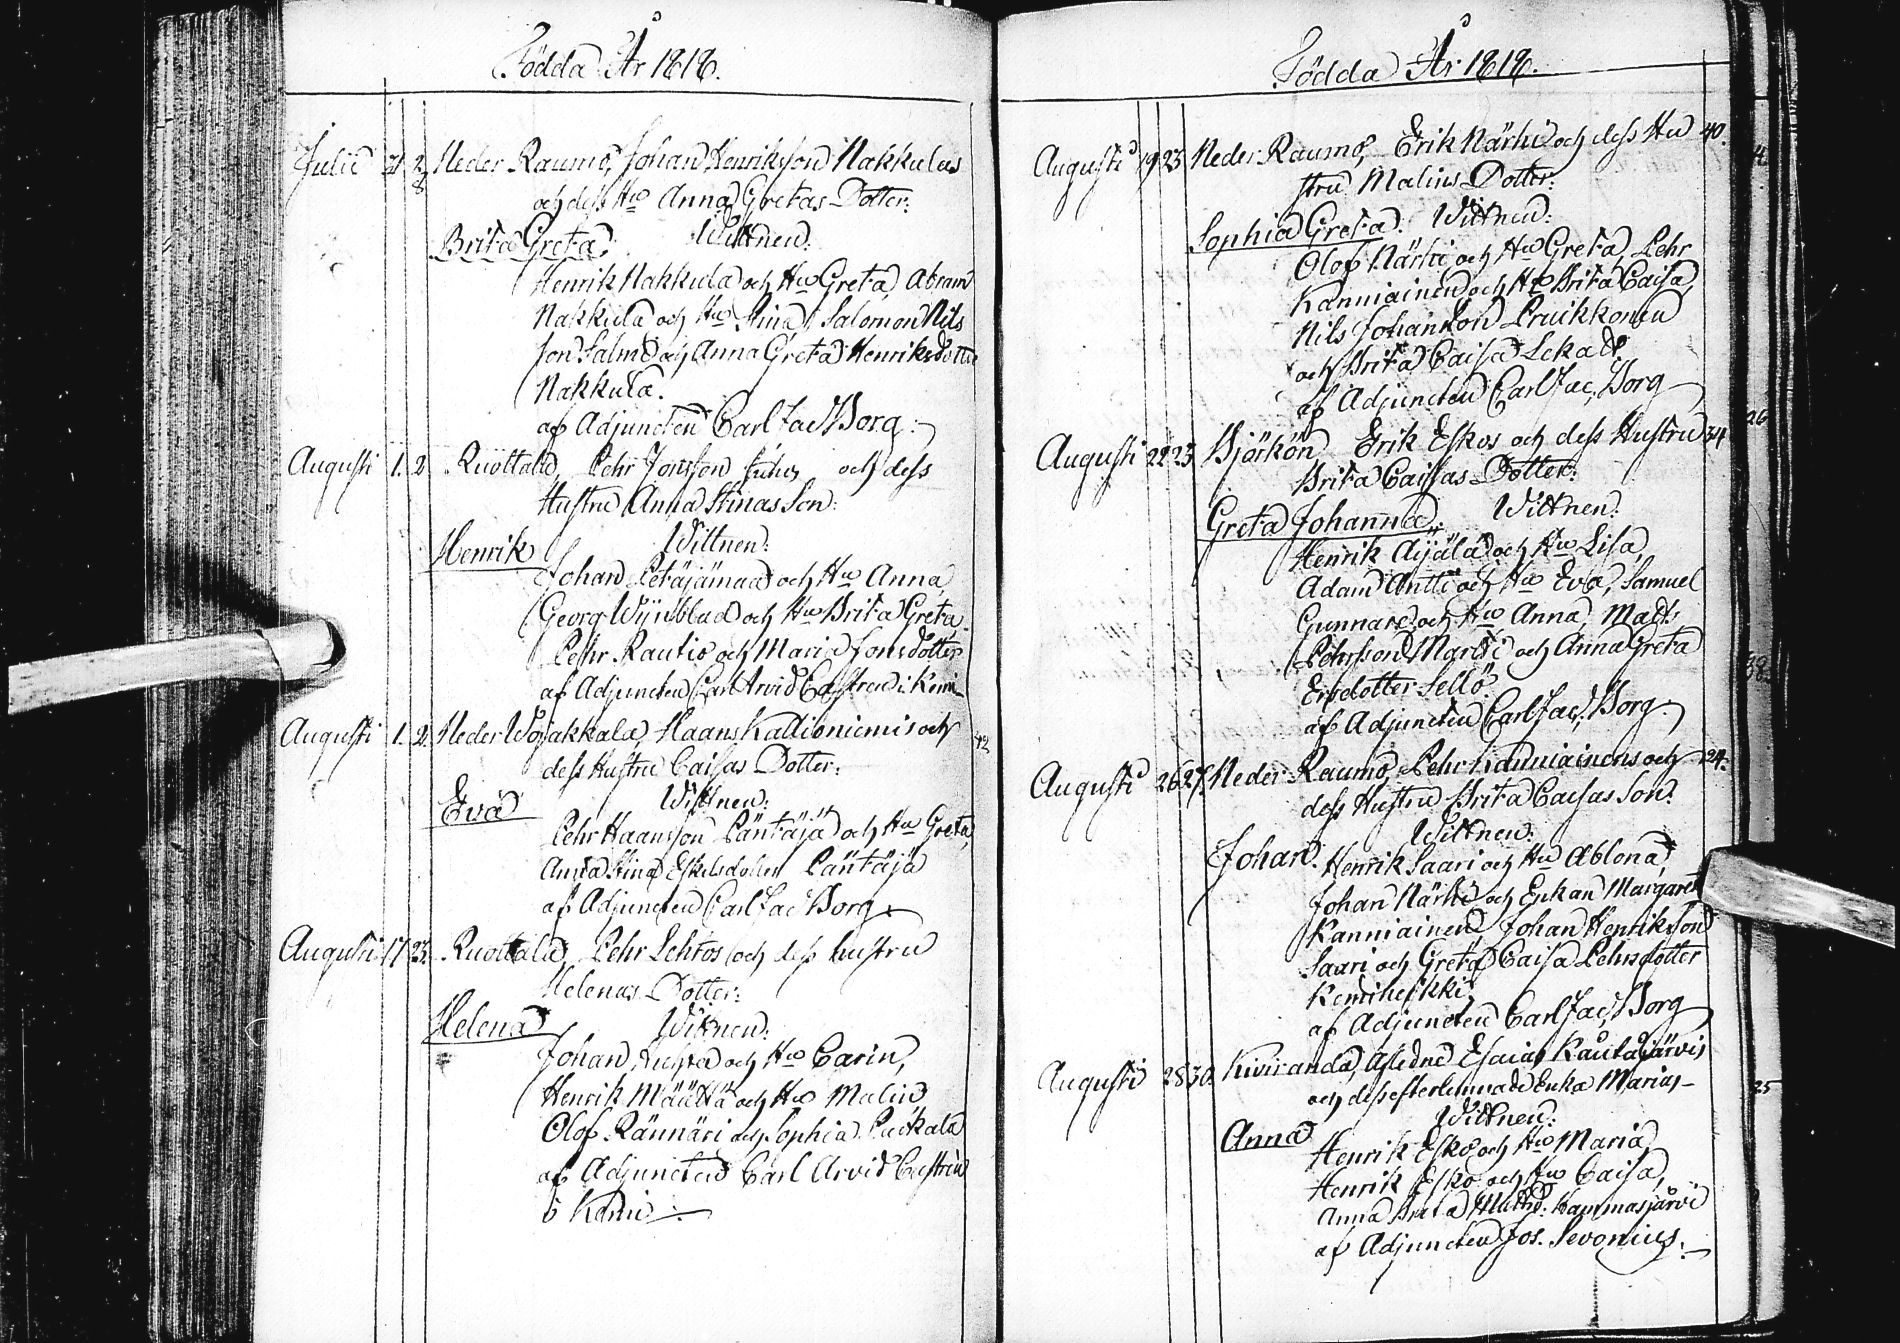 Födda År 1818.
Julii 21 2/8 Neder Raumo, Johan Henriksson Nakkulas
och dess Hu Anna Gretas Dotter:
Brita Greta. Wittnen:
Henrik Nakkula och Hu Greta, Abram
Nakkula och Hu Stina, Salomon Nils
son Salmo och Anna Greta Henriksdotter
Nakkula.
af Adjuncten Carl Jac Borg.
Augusti 1. 2. Ruottala, Pehr Jonsson och dess
Hustru Anna Stinas Son:
Henrik Wittnen:
Johan Petäjämaa och Hu Anna,
Georg Wijnblad och Hu Brita Greta,
Pehr Rautio och Maria Jonsdotter
af Adjuncten Carl Arvid Castren i Kemi
Augusti 1. 2. Neder Wojakkala, Haans Kallioniemis och 42
dess Hustru Caisas Dotter:
Eva Wittnen:
Pehr Haansson Päntäjä och Hu Greta,
Anna Stina Eskilsdotter Päntäjä
af Adjuncten Carl Jac Borg.
Augusti 17 23. Ruottala, Pehr Lehtos och dess hustru
Helenas Dotter:
Helena Wittnen:
Johan och Hu Carin,
Henrik Määttä och Hu Malin
Olof Rännäri och Sophia Puikala
af Adjuncten Carl Arvid Castren
i Kemi
Födda År 1818.
Augusti 19 23 Neder Raumo, Erik Närhi och dess Hu 40.
stru Malins Dotter:
Sophia Greta. Wittnen:
Olof Närhi och Hu Greta, Pehr
Kanniainen och Hu Brita Caisa,
Nils Johansson Pruikkonen
och Brita Caisa Lekat
af Adjuncten Carl Jac. Borg
Augusti 22 23 Björkön, Erik Eskos och dess Hustru 34
Brita Caisas Dotter:
Greta Johanna. Wittnen:
Henrik Äijälä och Hu Lisa,
Adam Antti och Hu Eva, Samuel
Gunnare och Hu Anna, Matts
Pehrsson Martti och Anna Greta
Ersdotter Sellö.
af Adjuncten Carl Jac. Borg.
Augusti 26 27. Neder Raumo, Pehr Kanniainens och 24.
dess Hustru Brita Caisas Son:
Wittnen:
Johan. Henrik Saari och Hu Ablona,
Johan Närhi och Enkan Margaret
Kanniainen, Johan Henriksson
Saari och Greta Caisa Pehrsdotter
Kemiheikki,
af Adjuncten Carl Jac. Borg
Augusti 28 30. Kiviranda, Afledne Esaias Rautajärvis
och dess efterlemnade Enka Marias
Wittnen: 25
Anna Henrik Esko och Hu Maria,
Henrik Esko och Hu Caisa,
Anna Brita Mattsd: Hammasjärvi
af Adjuncten Jos. Sevonius.